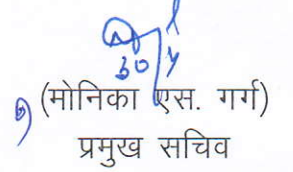 30/4
(मोनिका एस. गर्ग)
प्रमुख सचिव